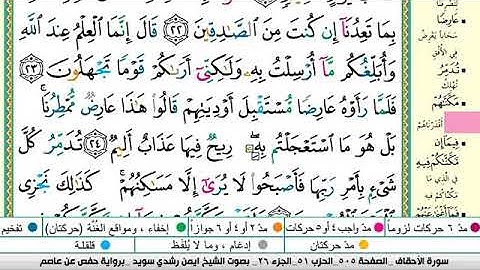 بِمَا تَعِدُنَآ إِن كُنتَ مِنَ ٱلصَّٰدِقِينَ ٢٢ قَالَ إِنَّمَا ٱلْعِلْمُ عِندَ ٱللَّهِ
وَأُبَلِّغُكُم مَّآ أُرْسِلْتُ بِهِۦ وَلَٰكِنِّىٓ أَرَىٰكُمْ قَوْمًا تَجْهَلُونَ ٢٣
فَلَمَّا رَأَوْهُ عَارِضًا مُّسْتَقْبِلَ أَوْدِيَتِهِمْ قَالُوا۟ هَٰذَا عَارِضٌ مُّمْطِرُنَا ۚ
بَلْ هُوَ مَا ٱسْتَعْجَلْتُم بِهِۦ ۖ رِيحٌ فِيهَا عَذَابٌ أَلِيمٌ ٢٤ تُدَمِّرُ كُلَّ
شَىْءٍۭ بِأَمْرِ رَبِّهَا فَأَصْبَحُوا۟ لَا يُرَىٰٓ إِلَّا مَسَٰكِنُهُمْ ۚ كَذَٰلِكَ نَجْزِى
عَارِضًا
سَحَابًا يَعْرِضُ
فِي الأُفُقِ
تُدَمِّرُ
تُهْلِكُ
مَكَّنَّٰهُمْ
أَقْدَرْنَاهُمْ
فِيمَآ إِن
مَّكَّنَّٰكُمْ فِيهِ
فِي الَّذِي مَا
مَكَّنَّاكُمْ فِيهِ
فَمَآ أَغْنَىٰ عَنْهُمْ
مد ٦ حركات لزوماً
مد واجب ٤ أو ٥ حركات
مد ٢ أو ٤ أو ٦ جوازاً
إخفاء، ومواقع الغُنَّة (حركتان)
تفخيم
مد حركتان
إدغام، وما لا يُلفَظ
قلقلة
سورة الأحقاف, الصفحة ٥٠٥, الحزب ٥١, الجزء ٢٦, بصوت الشيخ ايمن رشدي سويد , برواية حفص عن عاصم